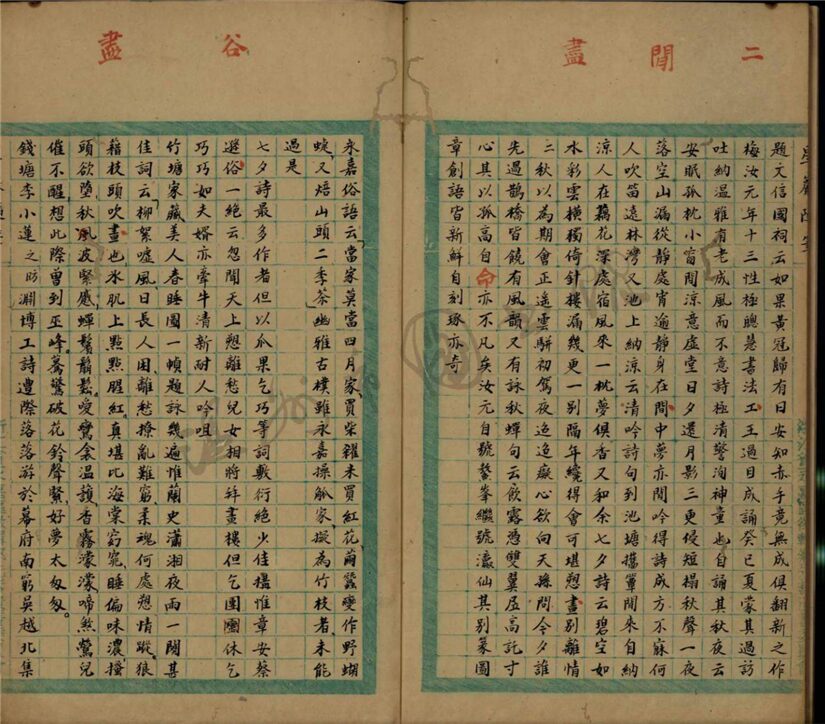 二聞盡
題文信國祠云如果黃冠歸有日安知赤手竟無成俱翻新之作
梅汝元年十三性極聰慧書法工王過目成誦癸巳夏蒙其過訪
吐納溫雅有老成風而不意詩極清警洵神童也自誦其秋夜云
安眠孤枕小窗間涼意虛堂日夕還月影三更侵短榻秋聲一夜
落空山漏從靜處宵逾靜身在閒中夢亦閒吟得詩成方不寐何
人吹笛遠林灣又池上納涼云清吟詩句到池塘攜簟閒來自納
涼人在藕花深處宿風來一枕夢俱香又和余七夕詩云碧空如
水彩雲橫獨倚針樓漏幾更一別隔年纔得會可堪愬盡別離情
二秋以為期會正遙雲駢初駕夜迢迢癡心欲向天孫問今夕誰
先過鵲橋皆饒有風韻又有詠秋蟬句云飲露憑雙翼居高託寸
心其以孤高自命亦不凡矣汝元自號鰲峯繼號瀛仙其別篆圖
章創語皆新鮮自刻琢亦奇
谷盡
永嘉俗語云當家莫當四月家買柴糴米買紅花繭蠶變作野蝴
蜨又焙山頭二季茶幽雅古樸雖永嘉操觚家擬為竹枝者未能
過是
七夕詩最多作者但以瓜果乞巧等詞敷衍絕少佳搆惟章安蔡
選俗一絕云忽聞天上愬離愁兒女相將拜畫樓但乞團圞休乞
巧巧如夫婿亦牽牛清新耐人吟咀
竹塘家藏美人春睡圖一幀題詠幾遍惟蘭史瀟湘夜雨一闋甚
佳詞云柳絮噓風日長人困離愁撩亂難窮柔魂何處愬情蹤狼
藉枝頭吹盡也氷肌上點點腥紅真堪比海棠窈窕睡偏味濃搔
頭欲墮秋風波緊處蟬鬢鬅鬆愛鴦衾溫護香霧濛濛啼煞鶯兒
催不醒想此際曾到巫峰驀驚破花鈴聲繫好夢太匆匆
錢塘李小蓮之昉淵博工詩遭際落落游於幕府南窮吳越北集